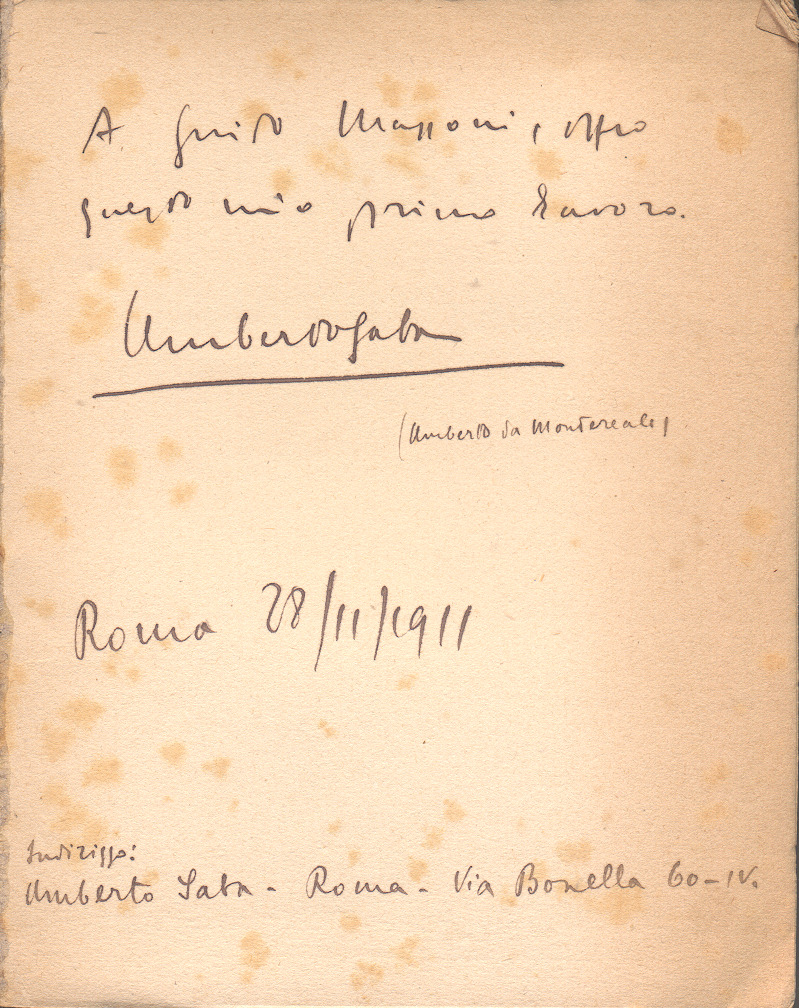 A Guido Mazzoni, offro
questo mio primo lavoro.
Umberto Saba
(Umberto da Montereale)
Roma 28/11/1911
Indirizzo:
Umberto Saba - Roma - Via Bonella 60-IV.